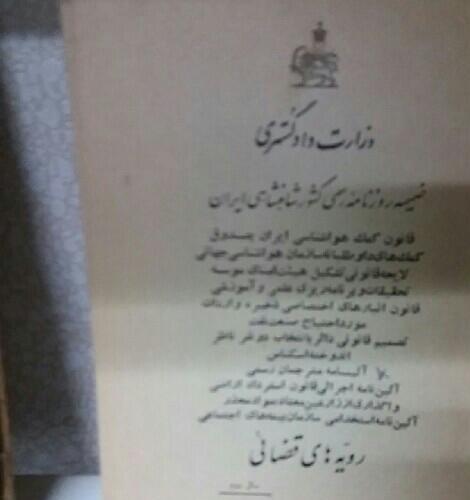 وزارت دادگستری
ضمیمه روزنامه رسمی کشور شاهنشاهی ایران
قانون کمک هواشناسی ایران بصندوق
کمک‌های داوطلبانه سازمان هواشناسی جهانی
لایحه قانونی تشکیل هیئت امنای موسسه
تحقیقات و برنامه‌ریزی علمی و آموزشی
قانون انبارهای اختصاصی ذخیره واردات
مورد احتیاج صنعت نفت
تصمیم قانونی دائر بانتخاب دو نفر ناظر
اندوخته اسکناس
آئیننامه مترجمان رسمی
آئین نامه اجرائی قانون استرداد اراضی
آئین نامه استخدامی سازمان بیمه‌های اجتماعی
رویه های قضائی
سال